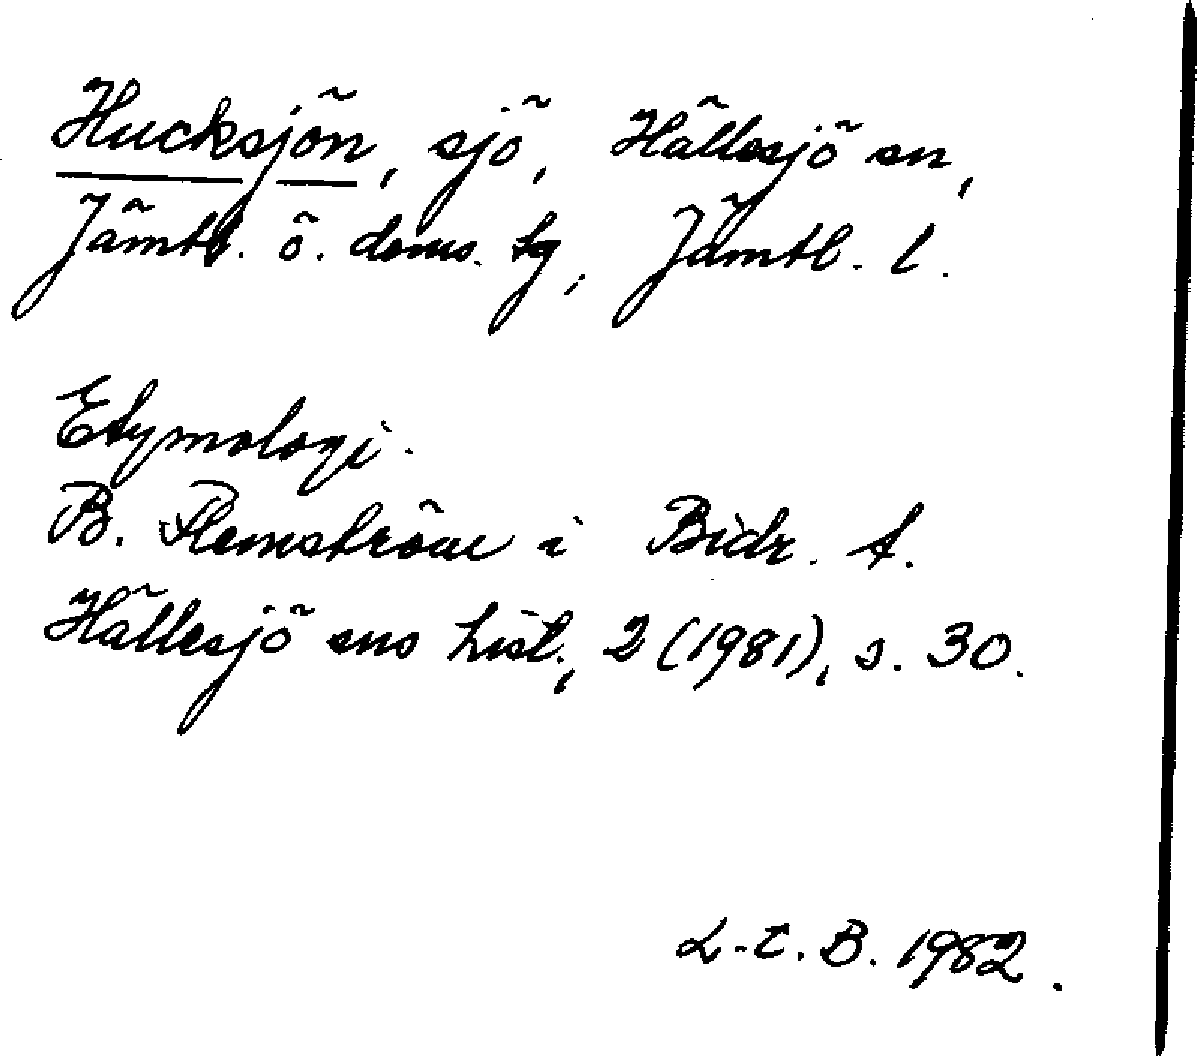 Hucksjön, sjö, Hällesjö sn,
Jämtl. ö. doms. tg, Jämtl. l.
Etymologi.
B. Flemström i Bidr. t.
Hällesjö sns hist., 2 (1981), s. 30.
L-E. B. 1982.